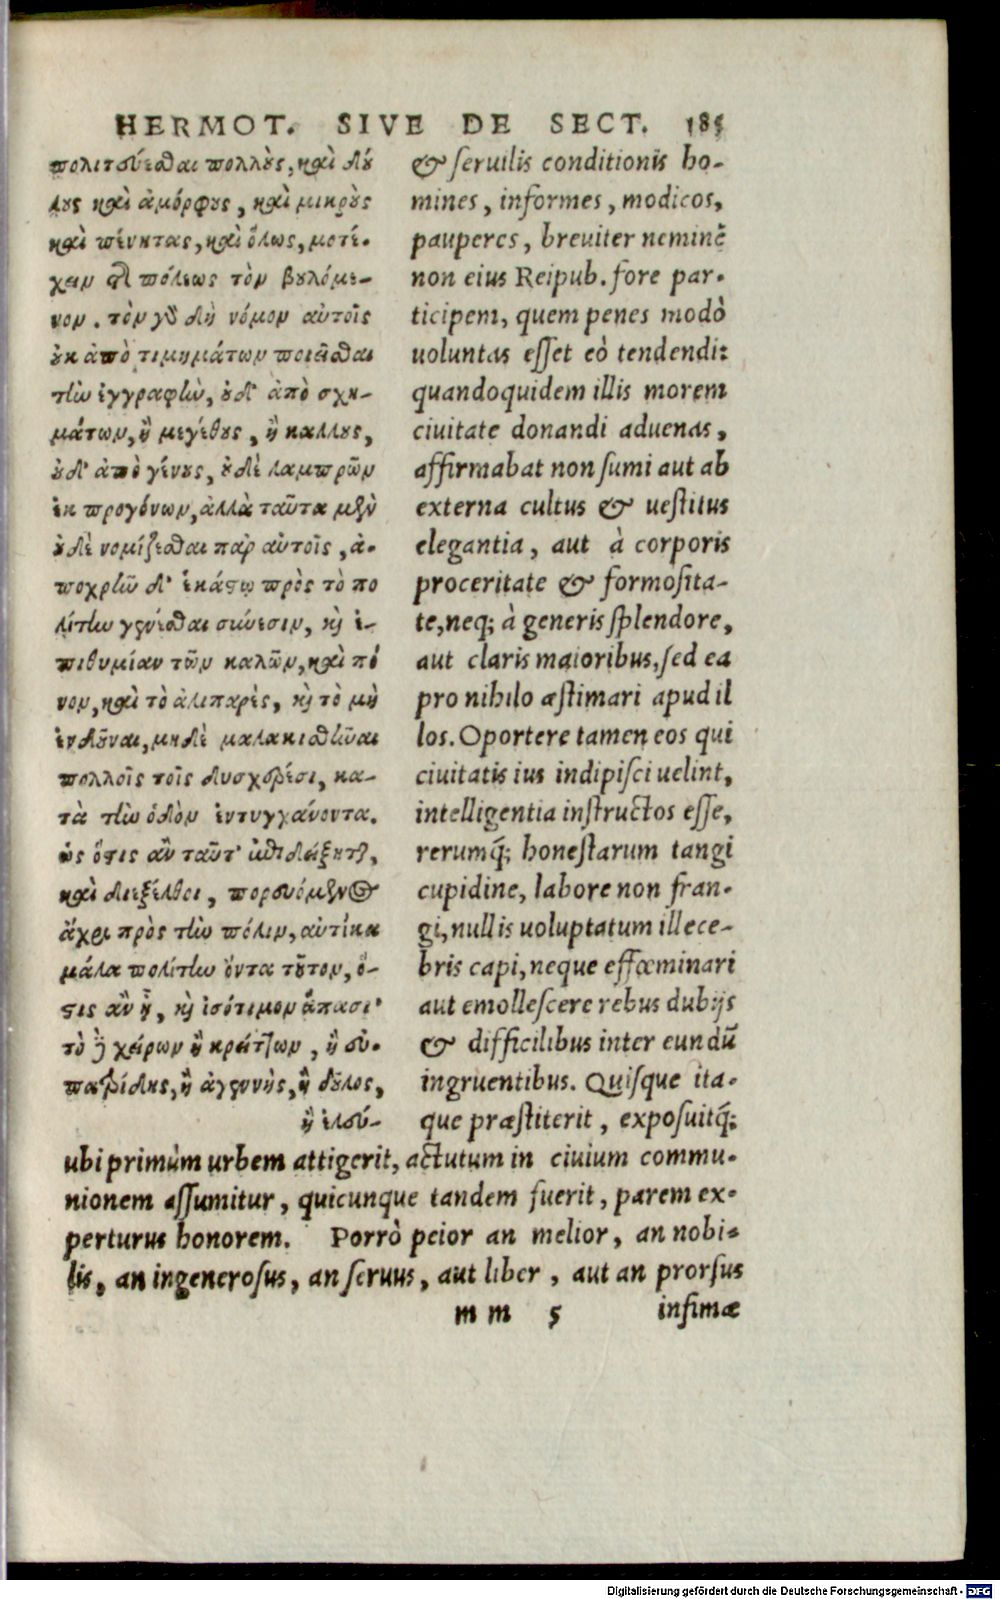 HERMOT. SIVE DE SECT. 185
πολιτεύεσθαι πολλοὺς, καὶ δού
λους καὶ ἀμόρφους, καὶ μικροὺς
καὶ πένητας, καὶ ὅλως, μετέ-
χειν τῆς πόλεως τὸν βουλόμε-
νον. τὸν γὸ δὴ νόμον αὐτοῖς
οὐκ ἀπὸ τιμημάτων ποιεῖσθαι
τὴν ἐγγραφὴν, οὐδ' ἀπὸ σχη-
μάτων, ἢ μεγέθους, ἢ κάλλους,
οὐδ' ἀπὸ γένους, οὐδὲ λαμπρῶν
ἐκ προγόνων, ἀλλὰ ταῦτα μὲν
οὐδὲ νομίζεσθαι παρ αὐτοῖς, ἀ-
ποχρῆν δ' ἑκάστῳ πρὸς τὸ πο
λίτην γενέσθαι σύνεσιν, καὶ ἐ-
πιθυμίαν τῶν καλῶν, καὶ πό
νον, καὶ τὸ λιπαρὲς, καὶ τὸ μὴ
ἐνδοῦναι, μηδὲ μαλακισθῆναι
πολλοῖς τοῖς δυσχερέσι, κα-
τὰ τὴν ὁδὸν ἐντυγχάνοντα.
ὡς ὅστις ἂν ταῦτ' ἐπιδείξηται,
καὶ διεξέλθοι, πορευόμενος
ἄχρι πρὸς τὴν πόλιν, αὐτίκα
μάλα πολίτην ὄντα τοῦτον, ὅ-
στις ἂν ᾖ, καὶ ἰσότιμον ἅπασι·
τὸ δὲ χείρων ἢ κρείττων, ἢ εὐ-
πατρίδης, ἢ ἀγεννὴς, ἢ δοῦλος,
ἢ ἐλεύ-
& seruilis conditionis ho-
mines, informes, modicos,
pauperes, breuiter neminē
non eius Reipub. fore par-
ticipem, quem penes modò
uoluntas esset eò tendendi:
quandoquidem illis morem
ciuitate donandi aduenas,
affirmabat non sumi aut ab
externa cultus & uestitus
elegantia, aut à corporis
proceritate & formosita-
te, neq; à generis splendore,
aut claris maioribus, sed ea
pro nihilo æstimari apud il
los. Oportere tamen eos qui
ciuitatis ius indipisci uelint,
intelligentia instructos esse,
rerumq́; honestarum tangi
cupidine, labore non fran-
gi, nullis uoluptatum illece-
bris capi, neque effœminari
aut emollescere rebus dubijs
& difficilibus inter eundū
ingruentibus. Quisque ita-
que præstiterit, exposuitq́;
ubi primùm urbem attigerit, actutum in ciuium commu-
nionem assumitur, quicunque tandem fuerit, parem ex-
perturus honorem. Porrò peior an melior, an nobi-
lis, an ingenerosus, an seruus, aut liber, aut an prorsus
m m 5 infimæ
Digitalisierung gefördert durch die Deutsche Forschungsgemeinschaft - DFG